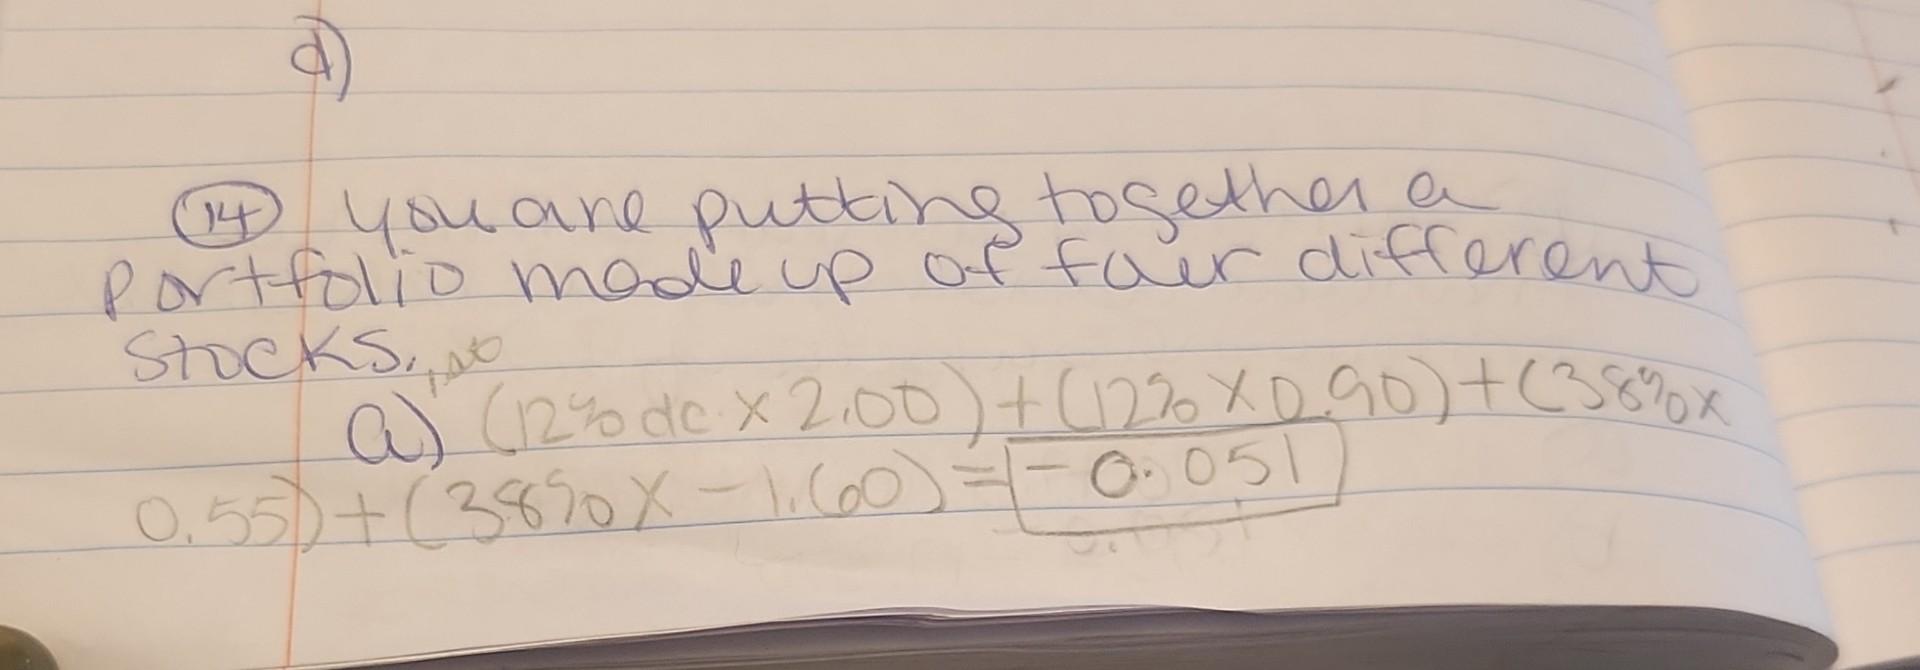 d)
14 you are putting together a
portfolio made up of four different
stocks.
a) (12% dc. x 2.00) + (12% x 0.90) + (38% x
0.55) + (38% x -1.60) = -0.051